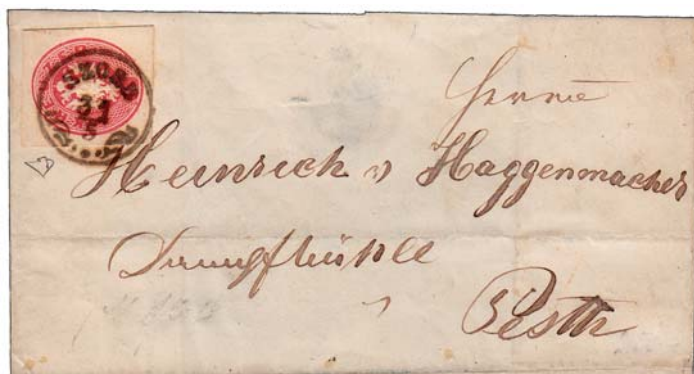 31
5
Herrn
Heinrich v Haggenmacher
Dampfmühle
Pesth